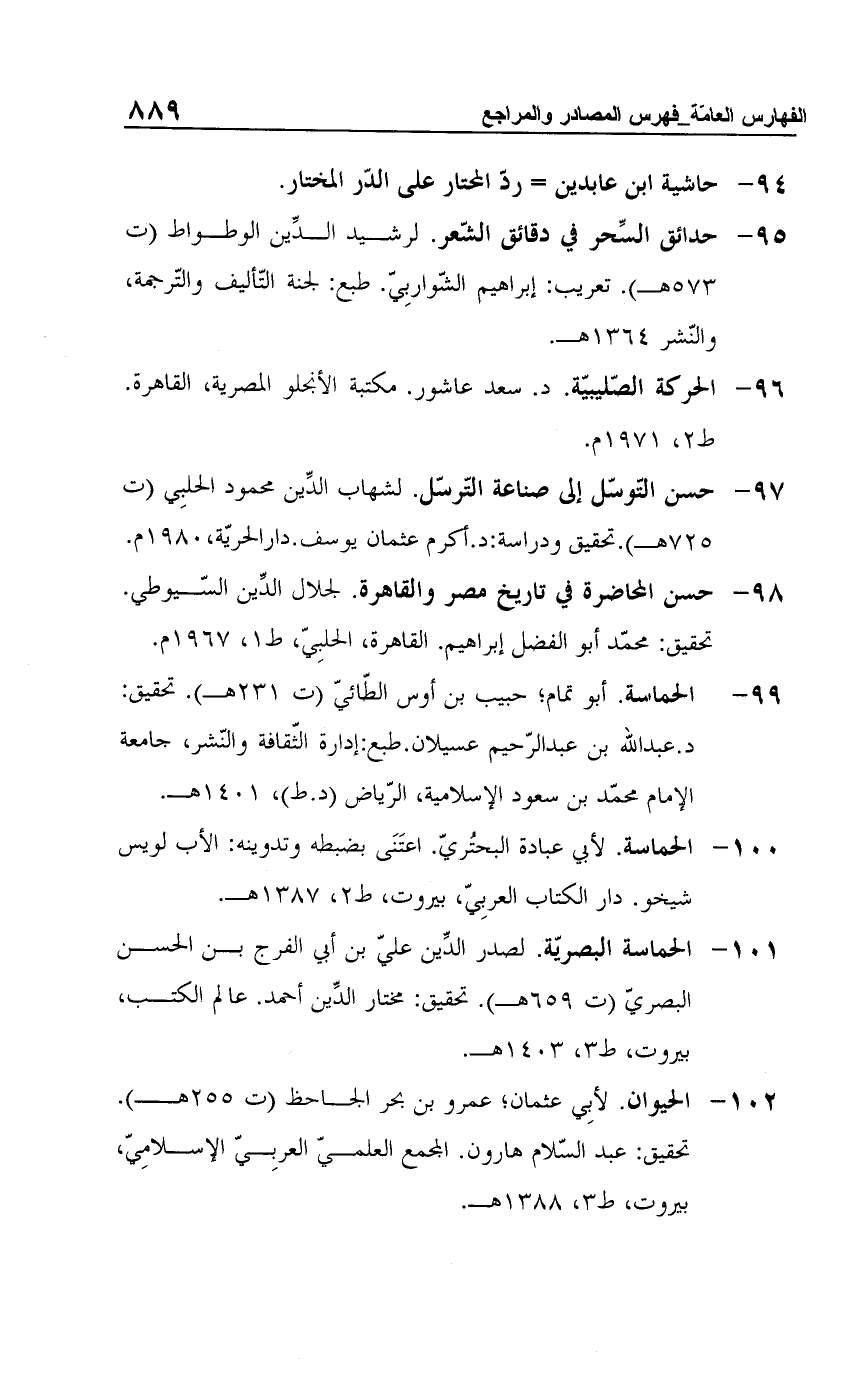 الفهارس العامّة_فهرس المصادر والمراجع ٨٨٩
٩٤- حاشية ابن عابدين = ردّ المحتار على الدّر المختار.
٩٥- حدائق السِّحر في دقائق الشّعر. لرشيد الدِّين الوطواط (ت
٥٧٣هـ). تعريب: إبراهيم الشّواربيّ. طبع: لجنة التّأليف والتّرجمة،
والنّشر ١٣٦٤هـ.
٩٦- الحركة الصّليبيّة. د. سعد عاشور. مكتبة الأنجلو المصرية، القاهرة.
ط٢، ١٩٧١م.
٩٧- حسن التّوسّل إلى صناعة التّرسّل. لشهاب الدِّين محمود الحلبي (ت
٧٢٥هـ).تحقيق ودراسة:د.أكرم عثمان يوسف.دارالحريّة،١٩٨٠م.
٩٨- حسن المحاضرة في تاريخ مصر والقاهرة. لجلال الدِّين السّيوطي.
تحقيق: محمّد أبو الفضل إبراهيم. القاهرة، الحلبيّ، ط١، ١٩٦٧م.
٩٩- الحماسة. أبو تمام؛ حبيب بن أوس الطّائيّ (ت ٢٣١هـ). تحقيق:
د.عبدالله بن عبدالرّحيم عسيلان.طبع:إدارة الثّقافة والنّشر، جامعة
الإمام محمّد بن سعود الإسلامية، الرّياض (د.ط)، ١٤٠١هـ.
١٠٠- الحماسة. لأبي عبادة البحتُريّ. اعتَنَى بضبطه وتدوينه: الأب لويس
شيخو. دار الكتاب العربيّ، بيروت، ط٢، ١٣٨٧هـ.
١٠١- الحماسة البصريّة. لصدر الدِّين عليّ بن أبي الفرج بن الحسن
البصريّ (ت ٦٥٩هـ). تحقيق: مختار الدِّين أحمد. عالم الكتب،
بيروت، ط٣، ١٤٠٣هـ.
١٠٢- الحيوان. لأبي عثمان؛ عمرو بن بحر الجاحظ (ت ٢٥٥هـ).
تحقيق: عبد السّلام هارون. المجمع العلميّ العربيّ الإسلاميّ،
بيروت، ط٣، ١٣٨٨هـ.